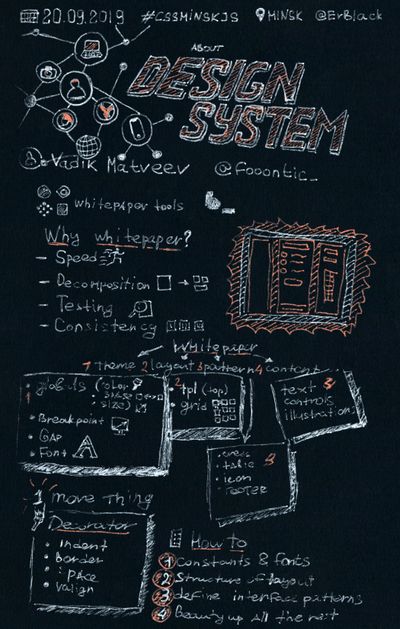 20.09.2019 #CSSMINSKJS MINSK @ErBlack
ABOUT
DESIGN
SYSTEM
Vadik Matveev @fooontic_
whitepaper tools
Why whitepaper?
- Speed
- Decomposition
- Testing
- Consistency
Whitepaper
1 Theme 2 layout 3 pattern 4 content
globals (color
size)
Breakpoint
GAP
Font A
2
tpl (top)
grid
text
controls
illustration
table
icon
FOOTER
move Thing
Decorator
indent
border
space
valign
How to
1 constants & fonts
2 Structure of layout
3 define interface patterns
4 Beauty up all the rest